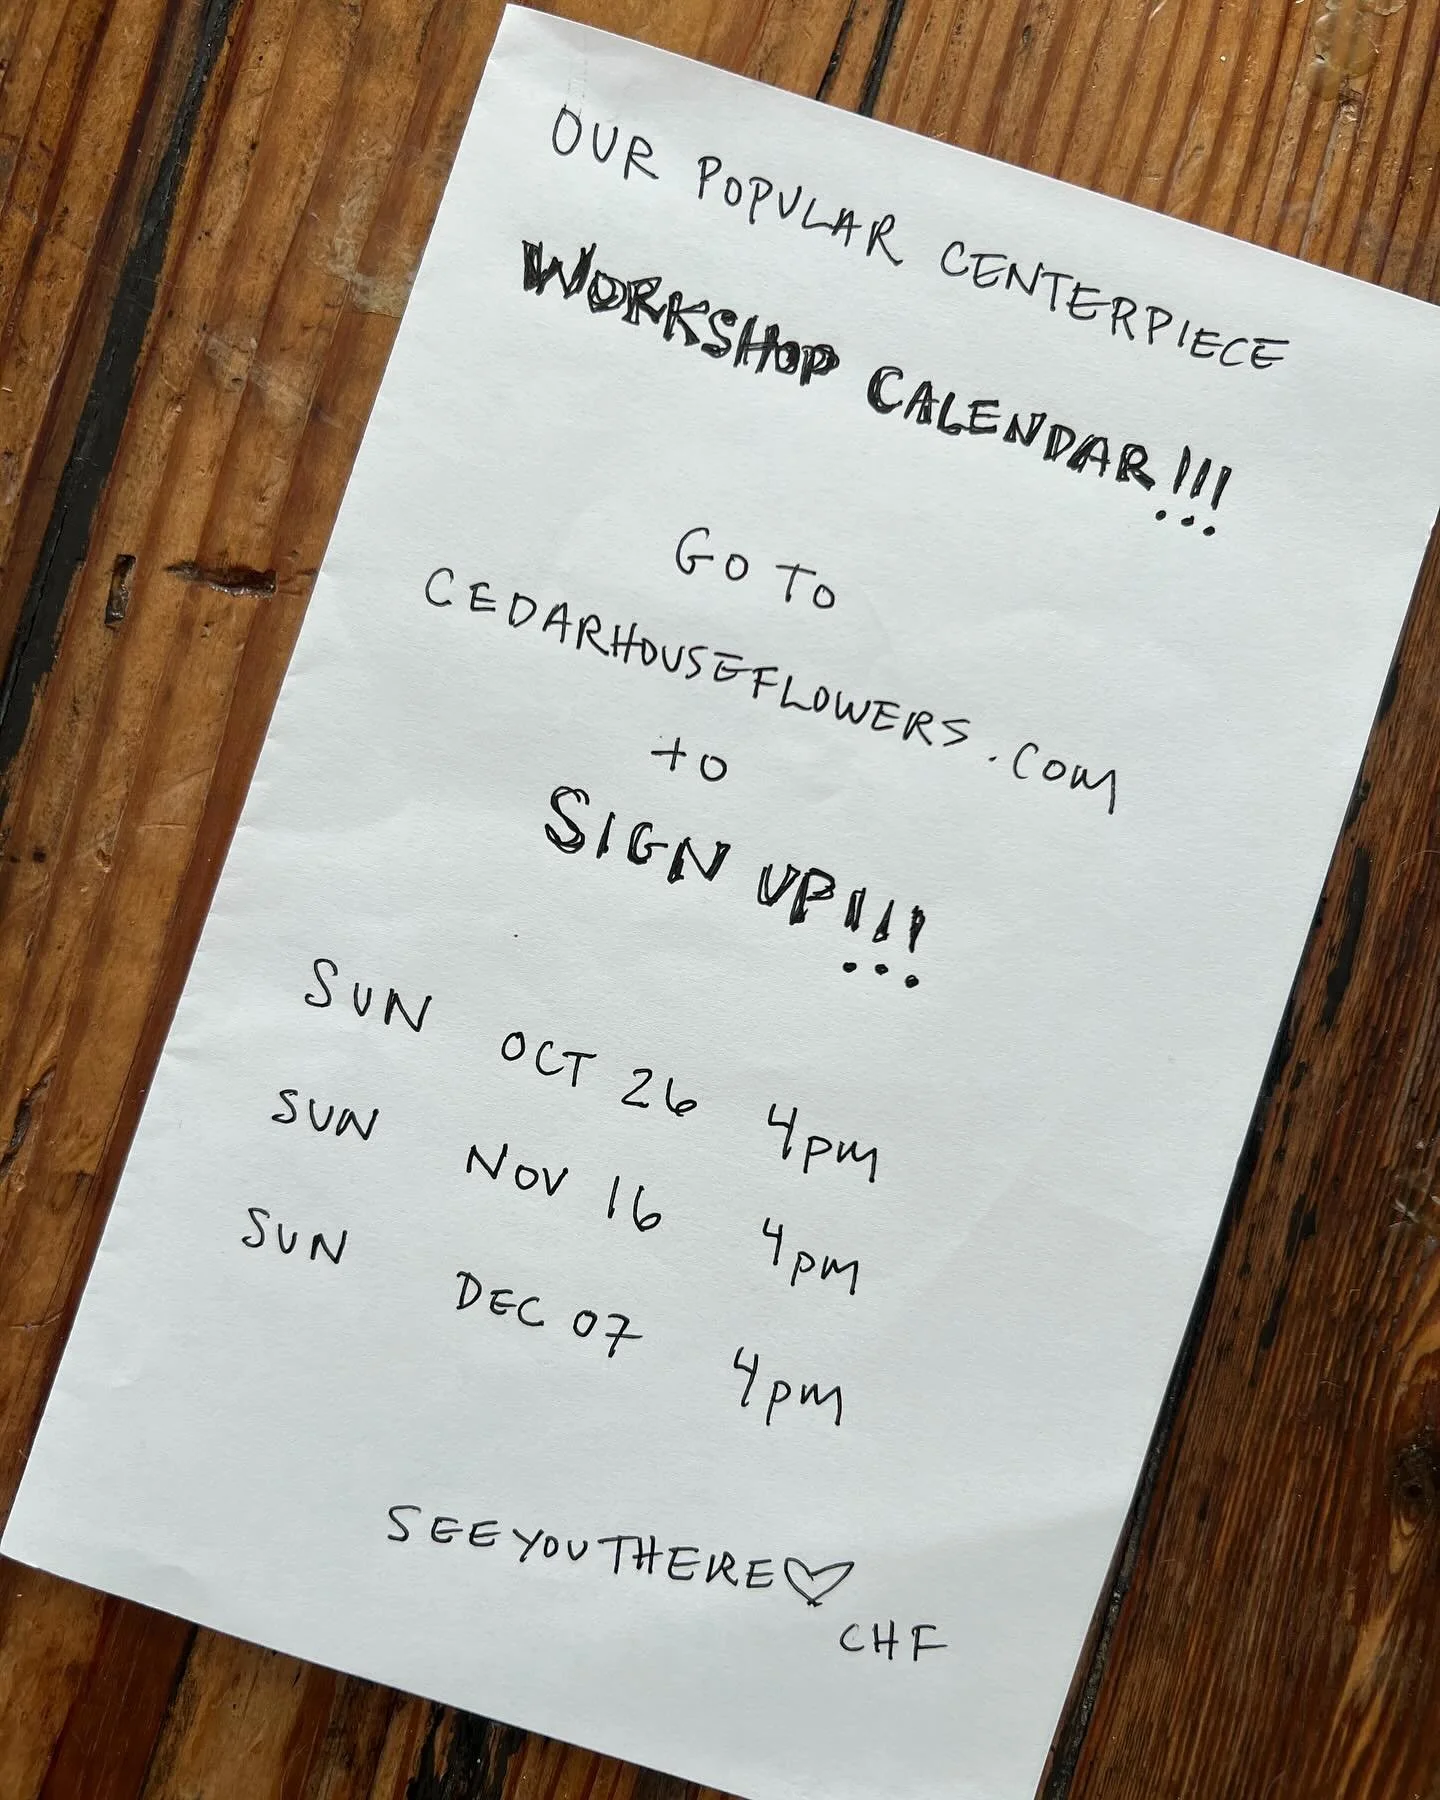 OUR POPULAR CENTERPIECE
WORKSHOP CALENDAR!!!
GO TO
CEDARHOUSEFLOWERS.COM
to
SIGN UP!!!
SUN OCT 26 4pm
SUN NOV 16 4pm
SUN DEC 07 4pm
SEE YOU THERE♡
CHF